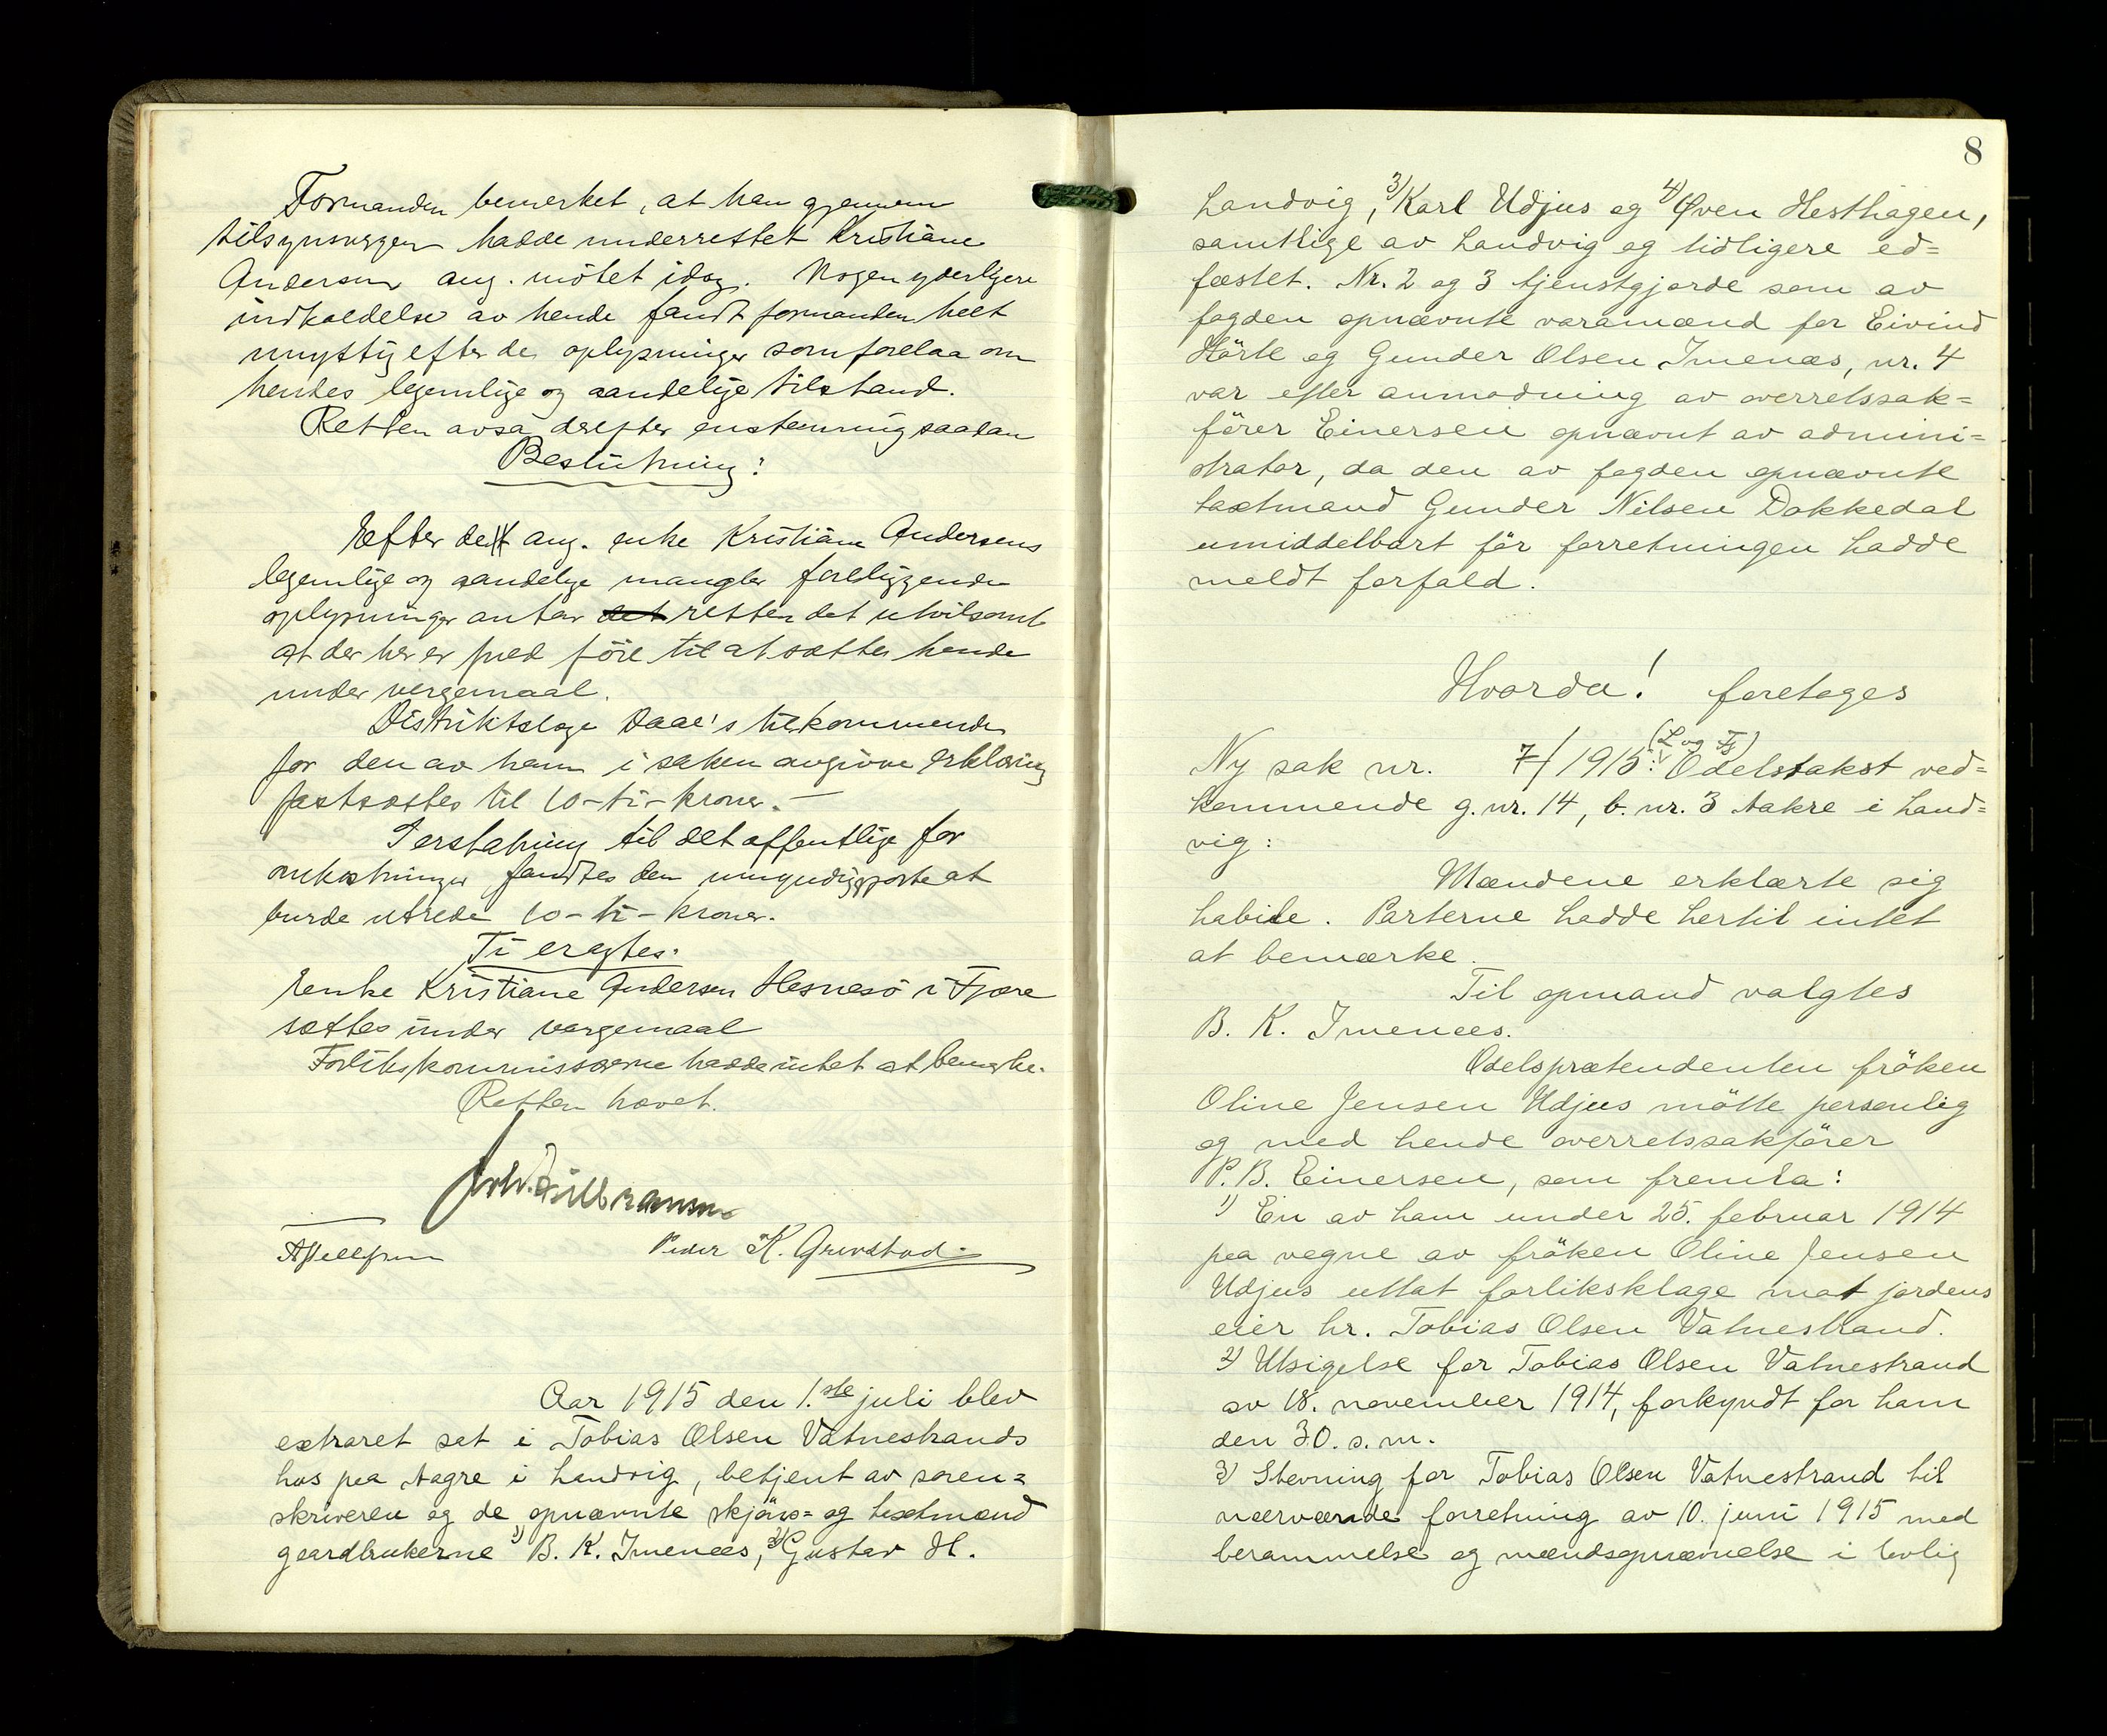 Formanden bemerket, at han gjennem
tilsynsvergen hadde underrettet Kristiane
Andersen ang. mötet idag. Nogen yderligere
indkaldelse av hende fandt formanden helt
unyttig efter de oplysninger som forelaa om
hendes legemlige og aandelige tilstand.
Retten avsa derefter enstemmig saadan
Beslutning:
Efter de ang. enke Kristiane Andersens
legemlige og aandelige mangler foreliggende
oplysninger antar retten det utvilsomt
at der her er fuld föie til at sætte hende
under vergemaal.
Distriktslæge Daae's tilkommende
for den av ham i saken avgivne erklæring
fastsættes til 10-ti-kroner.-
I erstatning til det offentlige for
omkostninger fandtes den umyndiggjorte at
burde utrede 10-ti-kroner.
Ti eragtes:
Enke Kristiane Andersen Hesnesö i Fjære
sættes under vergemaal
Forlikskommissærerne hadde intet at bemerke.
Retten hævet.
Peder K. Grevstad
Aar 1915 den 1.ste juli blev
extraret sat i Tobias Olsen Vatnestrands
hus paa Aagre i Landvig, betjent av soren=
skriveren og de opnævnte skjöns= og taxtmænd
gaardbrukerne 1) B. K. Imenæs, 2) Gustav H.
8
Landvig, 3) Karl Udjus og 4) Øven Hesthagen,
samtlige av Landvig og tidligere ed=
fæstet. Nr. 2 og 3 tjenstgjorde som av
fogden opnævnte varamænd for Eivind
Hörte og Gunder Olsen Imenæs, nr. 4
var efter anmodning av overretssak=
förer Einersen opnævnt av admini=
strator, da den av fogden opnævnte
taxtmand Gunder Nilsen Dokkedal
umiddelbart för forretningen hadde
meldt forfald.
Hvorda! foretoges
(L og Fj)
Ny sak nr. 7/1915: Odelstakst ved=
kommende g.nr. 14, b.nr. 3 Aakre i Land=
vig:
Mændene erklærte sig
habile. Parterne hadde hertil intet
at bemærke.
Til opmand valgtes
B. K. Imenæs.
Odelsprætendenten fröken
Oline Jensen Udjus mötte personlig
og med hende overretssakförer
P. B. Einersen, som fremla:
1) En av ham under 25. februar 1914
paa vegne av fröken Oline Jensen
Udjus uttat forliksklage mot jordens
eier hr. Tobias Olsen Vatnestrand.
2) Utsigelse for Tobias Olsen Vatnestrand
av 18. november 1914, forkyndt for ham
den 30. s.m.
3) Stevning for Tobias Olsen Vatnestrand til
nærværende forretning av 10. juni 1915 med
berammelse og mændsopnævnelse i lovlig